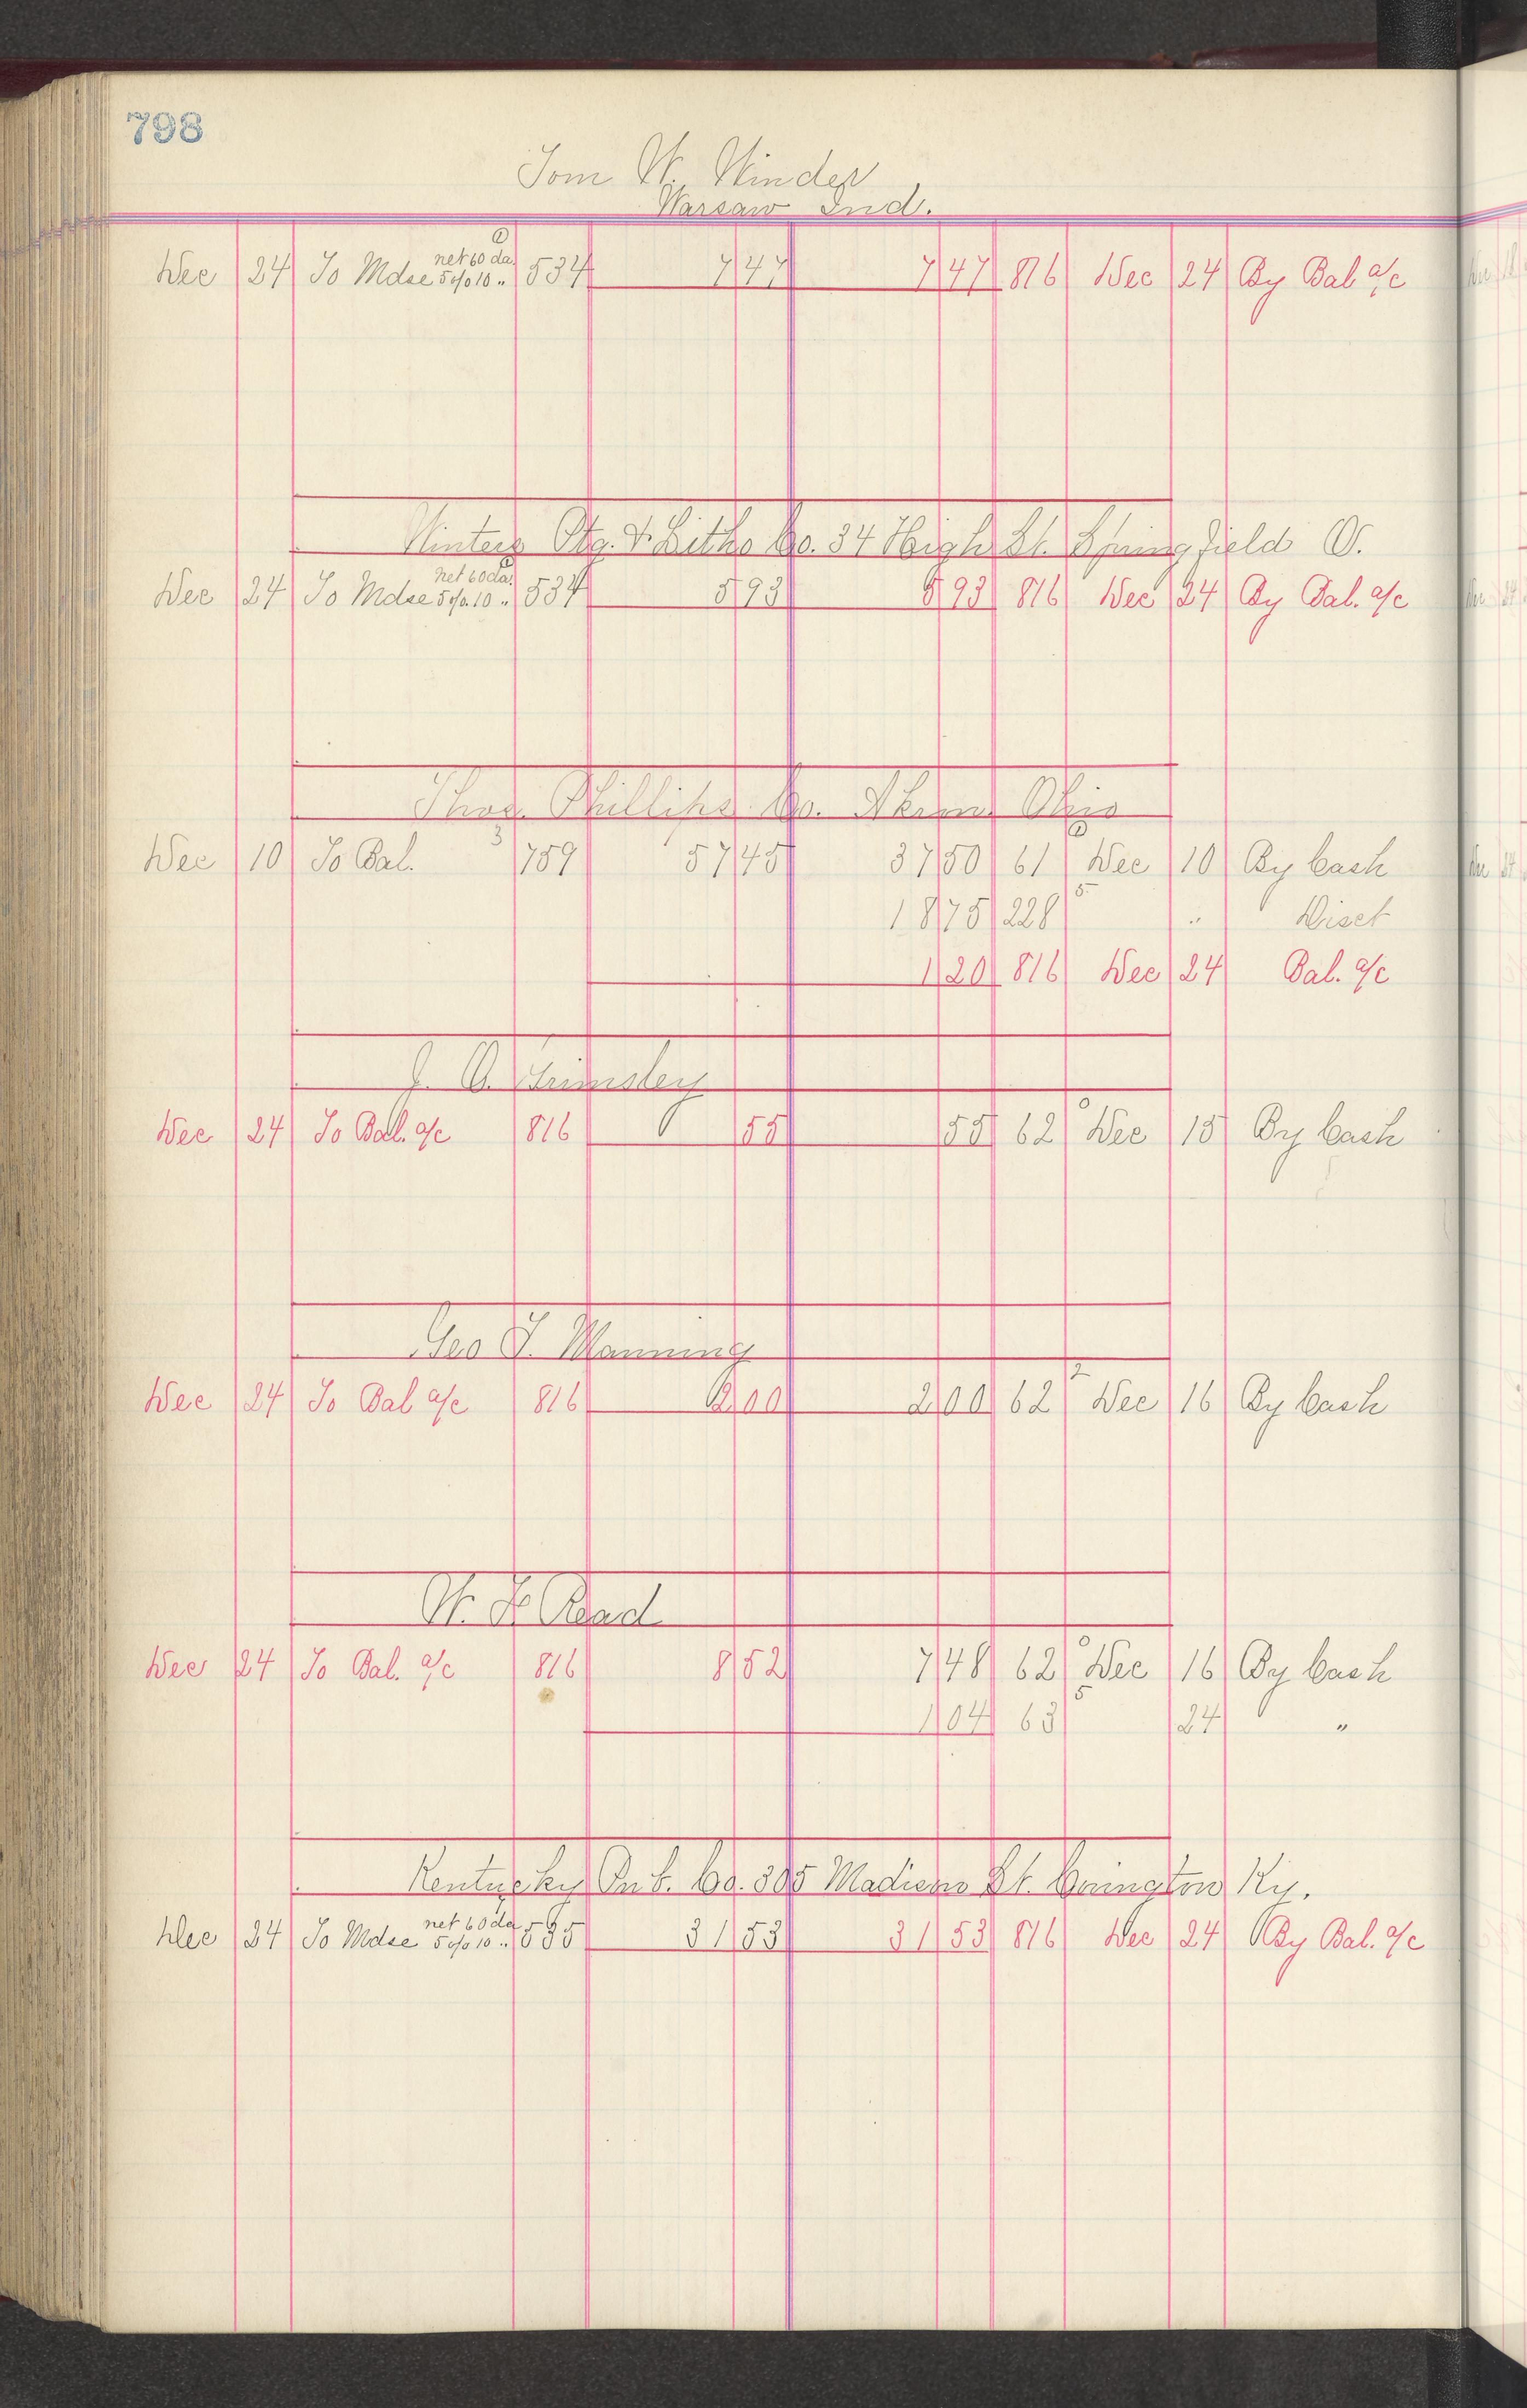 798
Tom W. Winder
Warsaw Ind.
①
net 60 da.
Dec 24 To Mdse 5% 10 " 534 7 47 7 47 816 Dec 24 By Bal a/c
Winters Ptg. & Litho Co. 34 High St. Springfield O.
net 60 da.
Dec 24 To Mdse 5% 10 " 534 5 93 5 93 816 Dec 24 By Bal. a/c
Thos. Phillips Co. Akron Ohio
Dec 10 To Bal. 3 759 57 45 37 50 61 Dec 10 By Cash
18 75 228 5 " Disct
1 20 816 Dec 24 Bal. a/c
J. O. Grimsley
Dec 24 To Bal. a/c 816 55 55 62 0 Dec 15 By Cash
Geo T. Manning
Dec 24 To Bal a/c 816 2 00 2 00 62 2 Dec 16 By Cash
W. F. Read
Dec 24 To Bal. a/c 816 8 52 7 48 62 0 Dec 16 By Cash
1 04 63 5 24 "
Kentucky Pub. Co. 305 Madison St. Covington Ky.
net 60 da
Dec 24 To Mdse 5% 10 " 535 31 53 31 53 816 Dec 24 By Bal. a/c